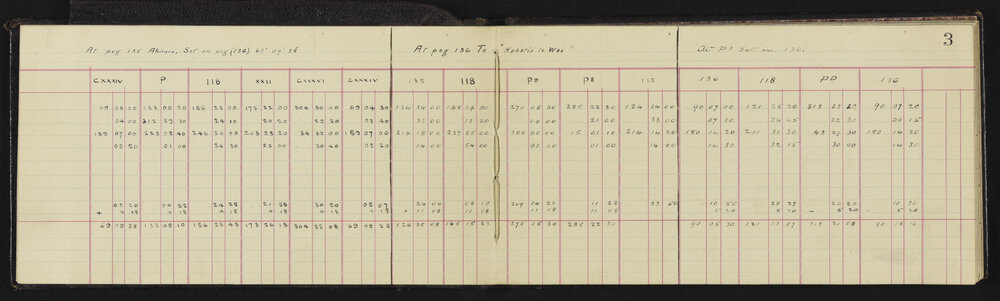 3
At peg 135 Ahirara, Set on peg (136)
At peg 136 Te Kokatia te Wao
At PD Set on 136.
CXXXIV P 116 XXII CXXXVI CXXXIV 135 118 PD P8 135 136 118 PD 136
69 05 00 133 00 20 126 23 00 173 22 00 304 30 00 69 04 30 124 34 00 148 14 00 270 05 30 285 22 20 124 34 00 90 07 00 121 25 20 313 23 20 90 07 20
04 00 312 29 30 24 10 20 20 29 20 03 40 33 00 13 20 04 00 21 00 33 00 07 30 24 45 22 30 00 15
159 07 00 223 02 40 246 26 00 263 23 20 34 32 00 159 07 00 214 15 00 237 55 00 359 55 00 15 01 10 214 14 20 180 14 20 211 31 30 43 29 30 180 14 20
05 20 01 00 24 30 22 00 30 40 05 20 14 00 54 00 03 00 01 00 14 00 14 30 32 15 30 00 14 30
05 20 00 52 24 25 21 58 30 50 05 07 24 00 08 15 269 54 22 11 22 23 50 10 50 28 27 26 20 10 36
+ 4 18 + 18 + 18 + 18 + 18 + 18 + 11 08 11 08 11 08 11 08 5 20 5 20 – 5 20 – 5 20
69 09 38 133 05 10 126 28 43 173 26 13 304 35 08 69 09 25 124 35 08 148 15 23 270 05 30 285 22 30 90 05 30 121 23 07 313 21 00 90 05 16